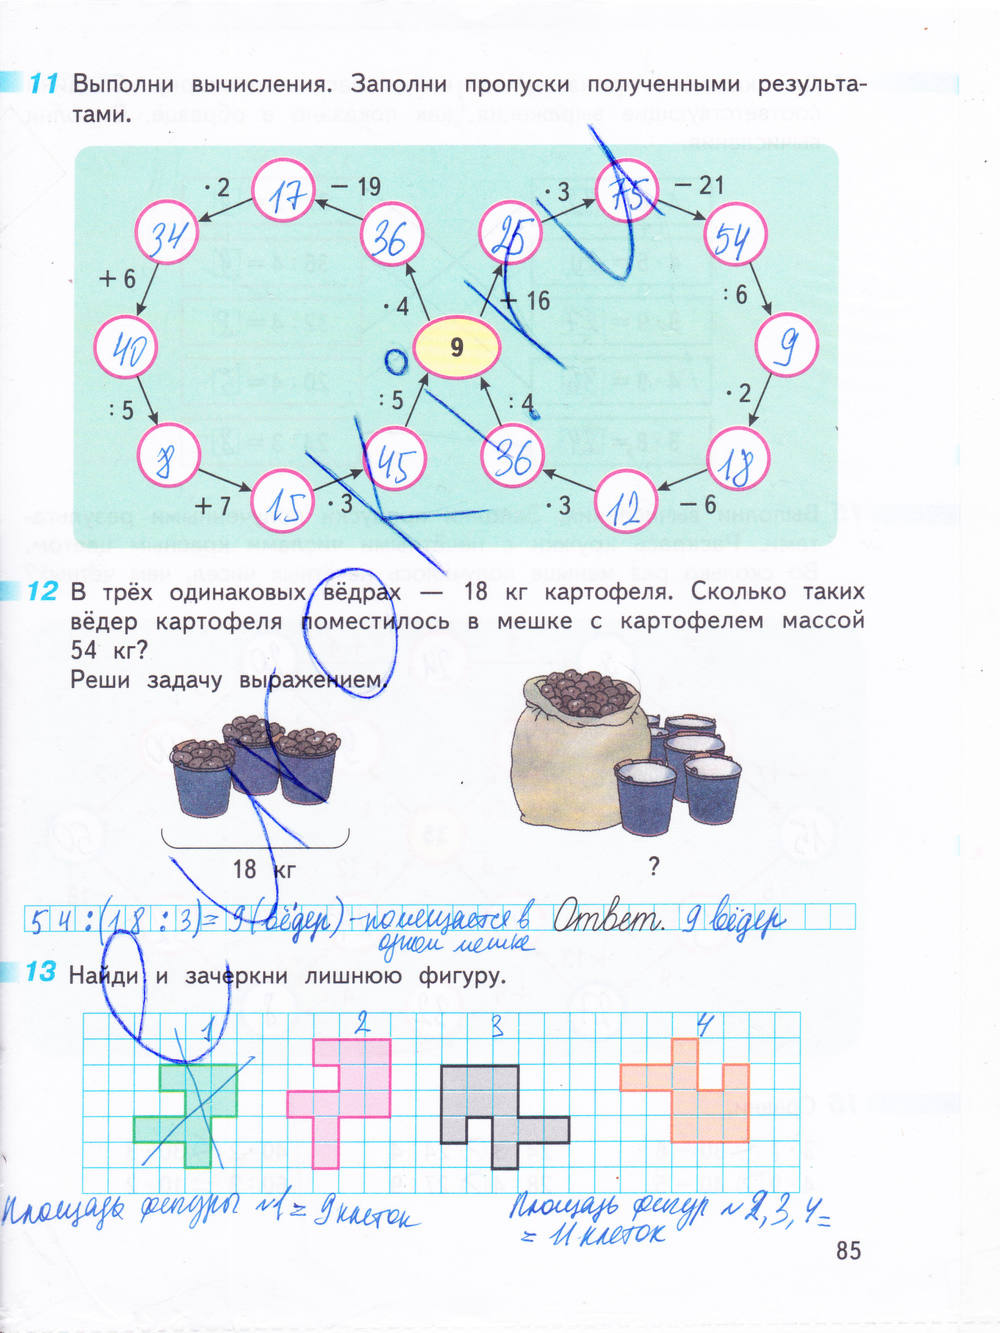 11 Выполни вычисления. Заполни пропуски полученными результа-
тами.
· 2 17 – 19 · 3 75 – 21
34 36 25 54
+ 6 · 4 + 16 : 6
40 9 9
: 5 : 5 : 4 · 2
8 45 36 18
+ 7 15 · 3 · 3 12 – 6
12 В трёх одинаковых вёдрах — 18 кг картофеля. Сколько таких
вёдер картофеля поместилось в мешке с картофелем массой
54 кг?
Реши задачу выражением.
18 кг ?
54:(18:3)=9(вёдер)-помещается в Ответ. 9 вёдер
одном мешке
13 Найди и зачеркни лишнюю фигуру.
1 2 3 4
Площадь фигуры №1 = 9 клеток Площадь фигур №2,3,4=
= 11 клеток
85